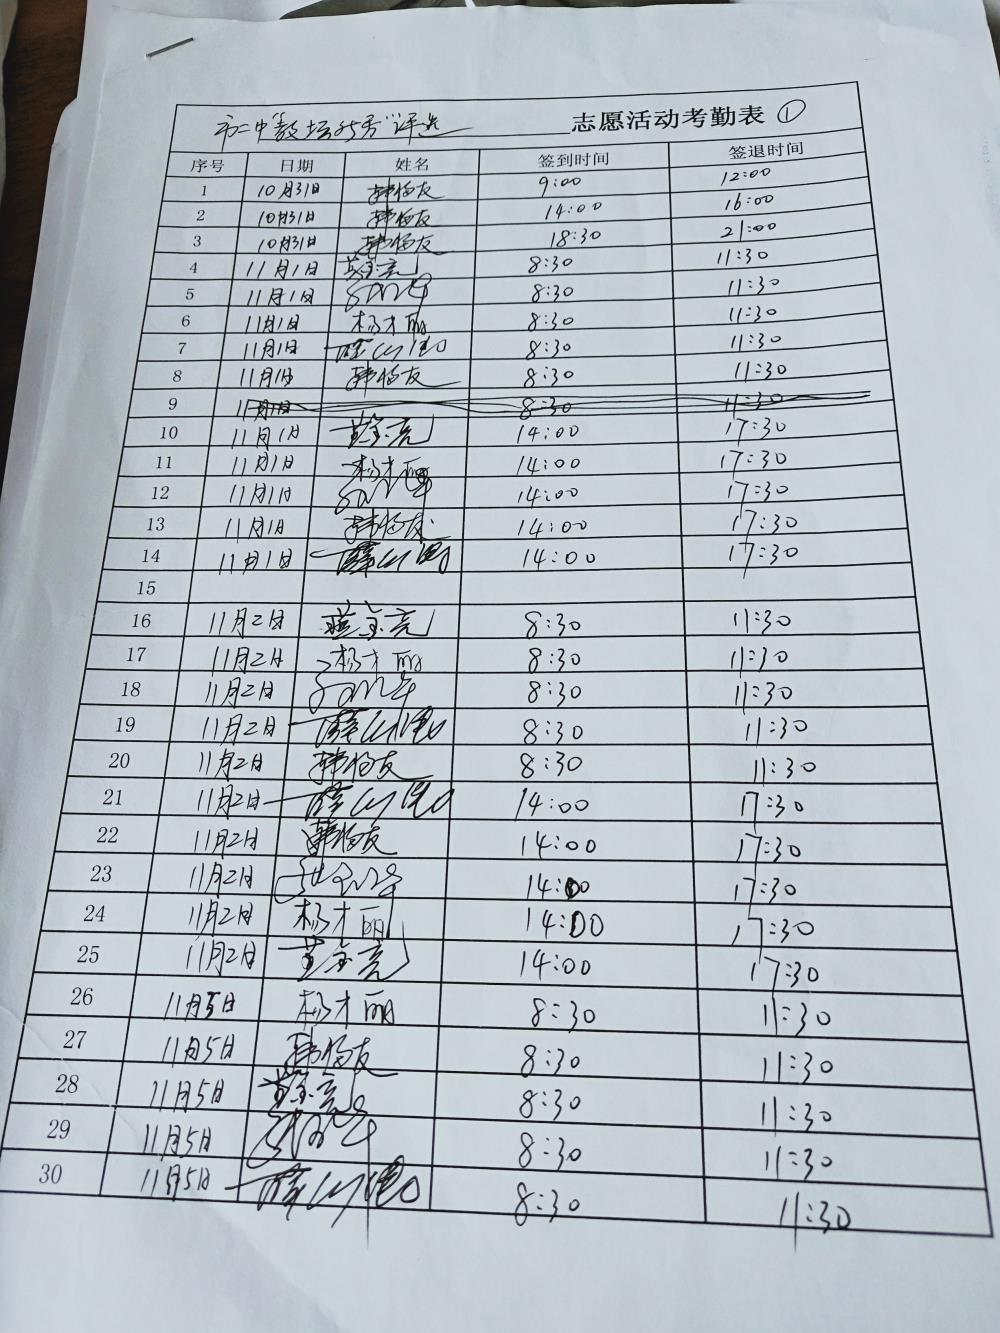 市二中"教坛新秀"评选 志愿活动考勤表 ①
序号 日期 姓名 签到时间 签退时间
1 10月31日 9:00 12:00
2 10月31日 14:00 16:00
3 10月31日 18:30 21:00
4 11月1日 8:30 11:30
5 11月1日 8:30 11:30
6 11月1日 杨才丽 8:30 11:30
7 11月1日 8:30 11:30
8 11月1日 8:30 11:30
9 11月1日 8:30 11:30
10 11月1日 14:00 17:30
11 11月1日 杨才丽 14:00 17:30
12 11月1日 14:00 17:30
13 11月1日 14:00 17:30
14 11月1日 14:00 17:30
15
16 11月2日 8:30 11:30
17 11月2日 杨才丽 8:30 11:30
18 11月2日 8:30 11:30
19 11月2日 8:30 11:30
20 11月2日 8:30 11:30
21 11月2日 14:00 17:30
22 11月2日 14:00 17:30
23 11月2日 14:00 17:30
24 11月2日 杨才丽 14:00 17:30
25 11月2日 14:00 17:30
26 11月5日 杨才丽 8:30 11:30
27 11月5日 8:30 11:30
28 11月5日 8:30 11:30
29 11月5日 8:30 11:30
30 11月5日 8:30 11:30